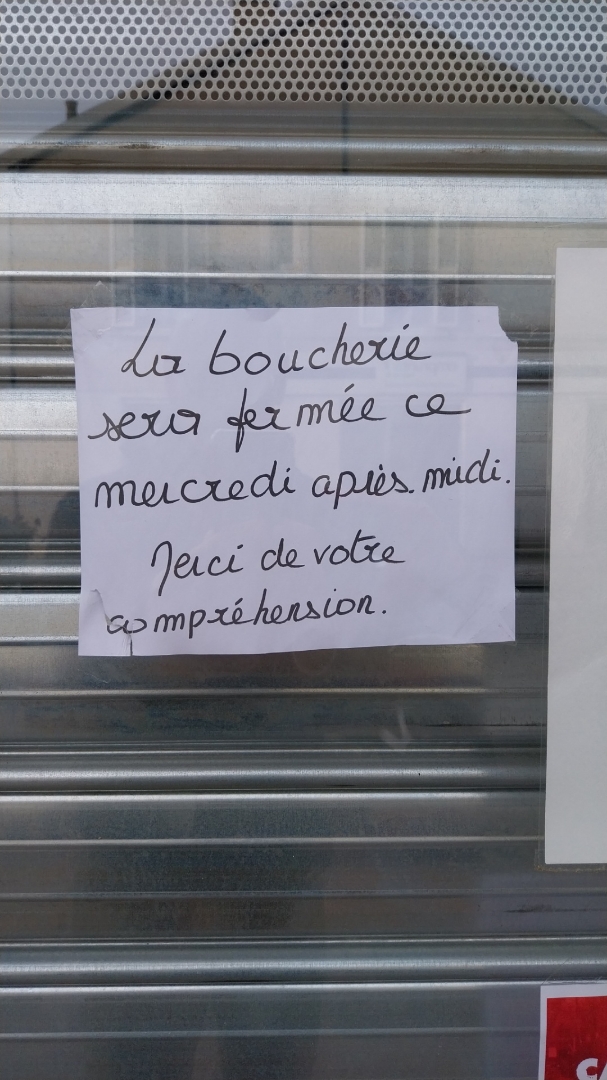 La boucherie
sera fermée ce
mercredi après.midi.
Merci de votre
compréhension.